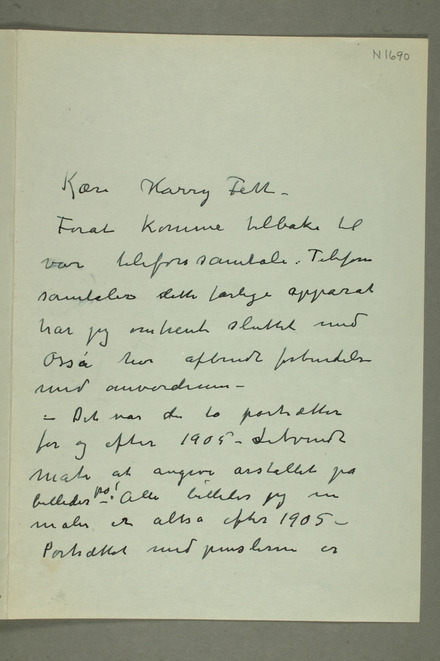 N 1690
Kære Harry Fett –
Forat komme tilbake til
vor telefonsamtale. Telefon
samtaler dette farlige apparat
har jeg omtrent sluttet med
Også har afbrudt forbindelse
med
– Det var de to portrætter
før og efter 1905 –
Mate at angive årstallet på
billedet på! Alle billeder jeg nu
maler er altså efter 1905 –
Portrættet med penslerne er